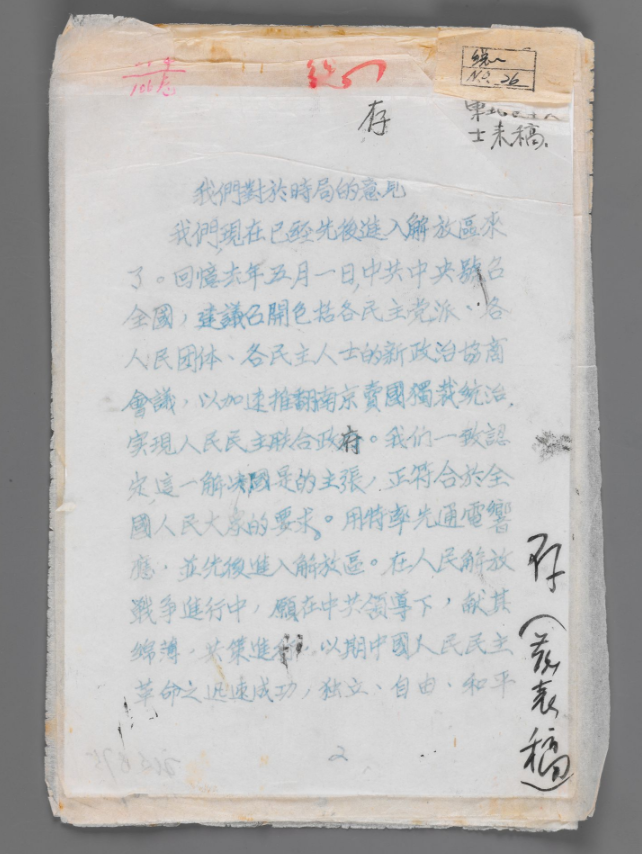 统一
统一
No. 26
存
士来稿.
我們對於時局的意見
我們,現在已經先後進入解放區來
了。回憶去年五月一日,中共中央號召
全國,建議召開包括各民主党派、各
人民团体、各民主人士的新政治協商
會議,以加速推翻南京賣國獨裁統治,
实現人民民主联合政府。我们一致認
定,這一解决國是的主張,正符合於全
國人民大家的要求。用特率先通電響
應,並先後進入解放區。在人民解放
戰争進行中,願在中共領導下,献其
綿薄,共策進行,以期中國人民民主
革命之迅速成功,独立、自由、和平
2
存(发表稿)